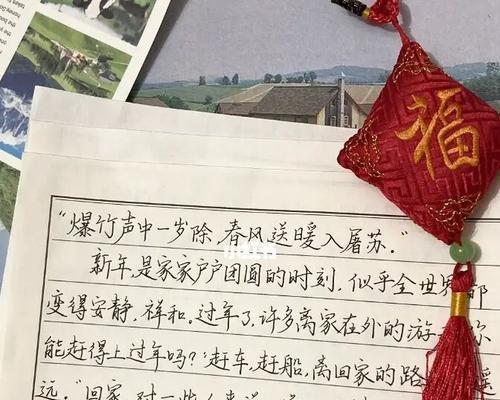 福
"爆竹声中一岁除,春风送暖入屠苏."
新年,是家家户户团圆的时刻,似乎全世界都
变得安静,祥和。过年了,许多离家在外的游 你
能赶得上过年吗?赶车,赶船,离回家的路 遥
远。"回家,对一些人来说,
小红书